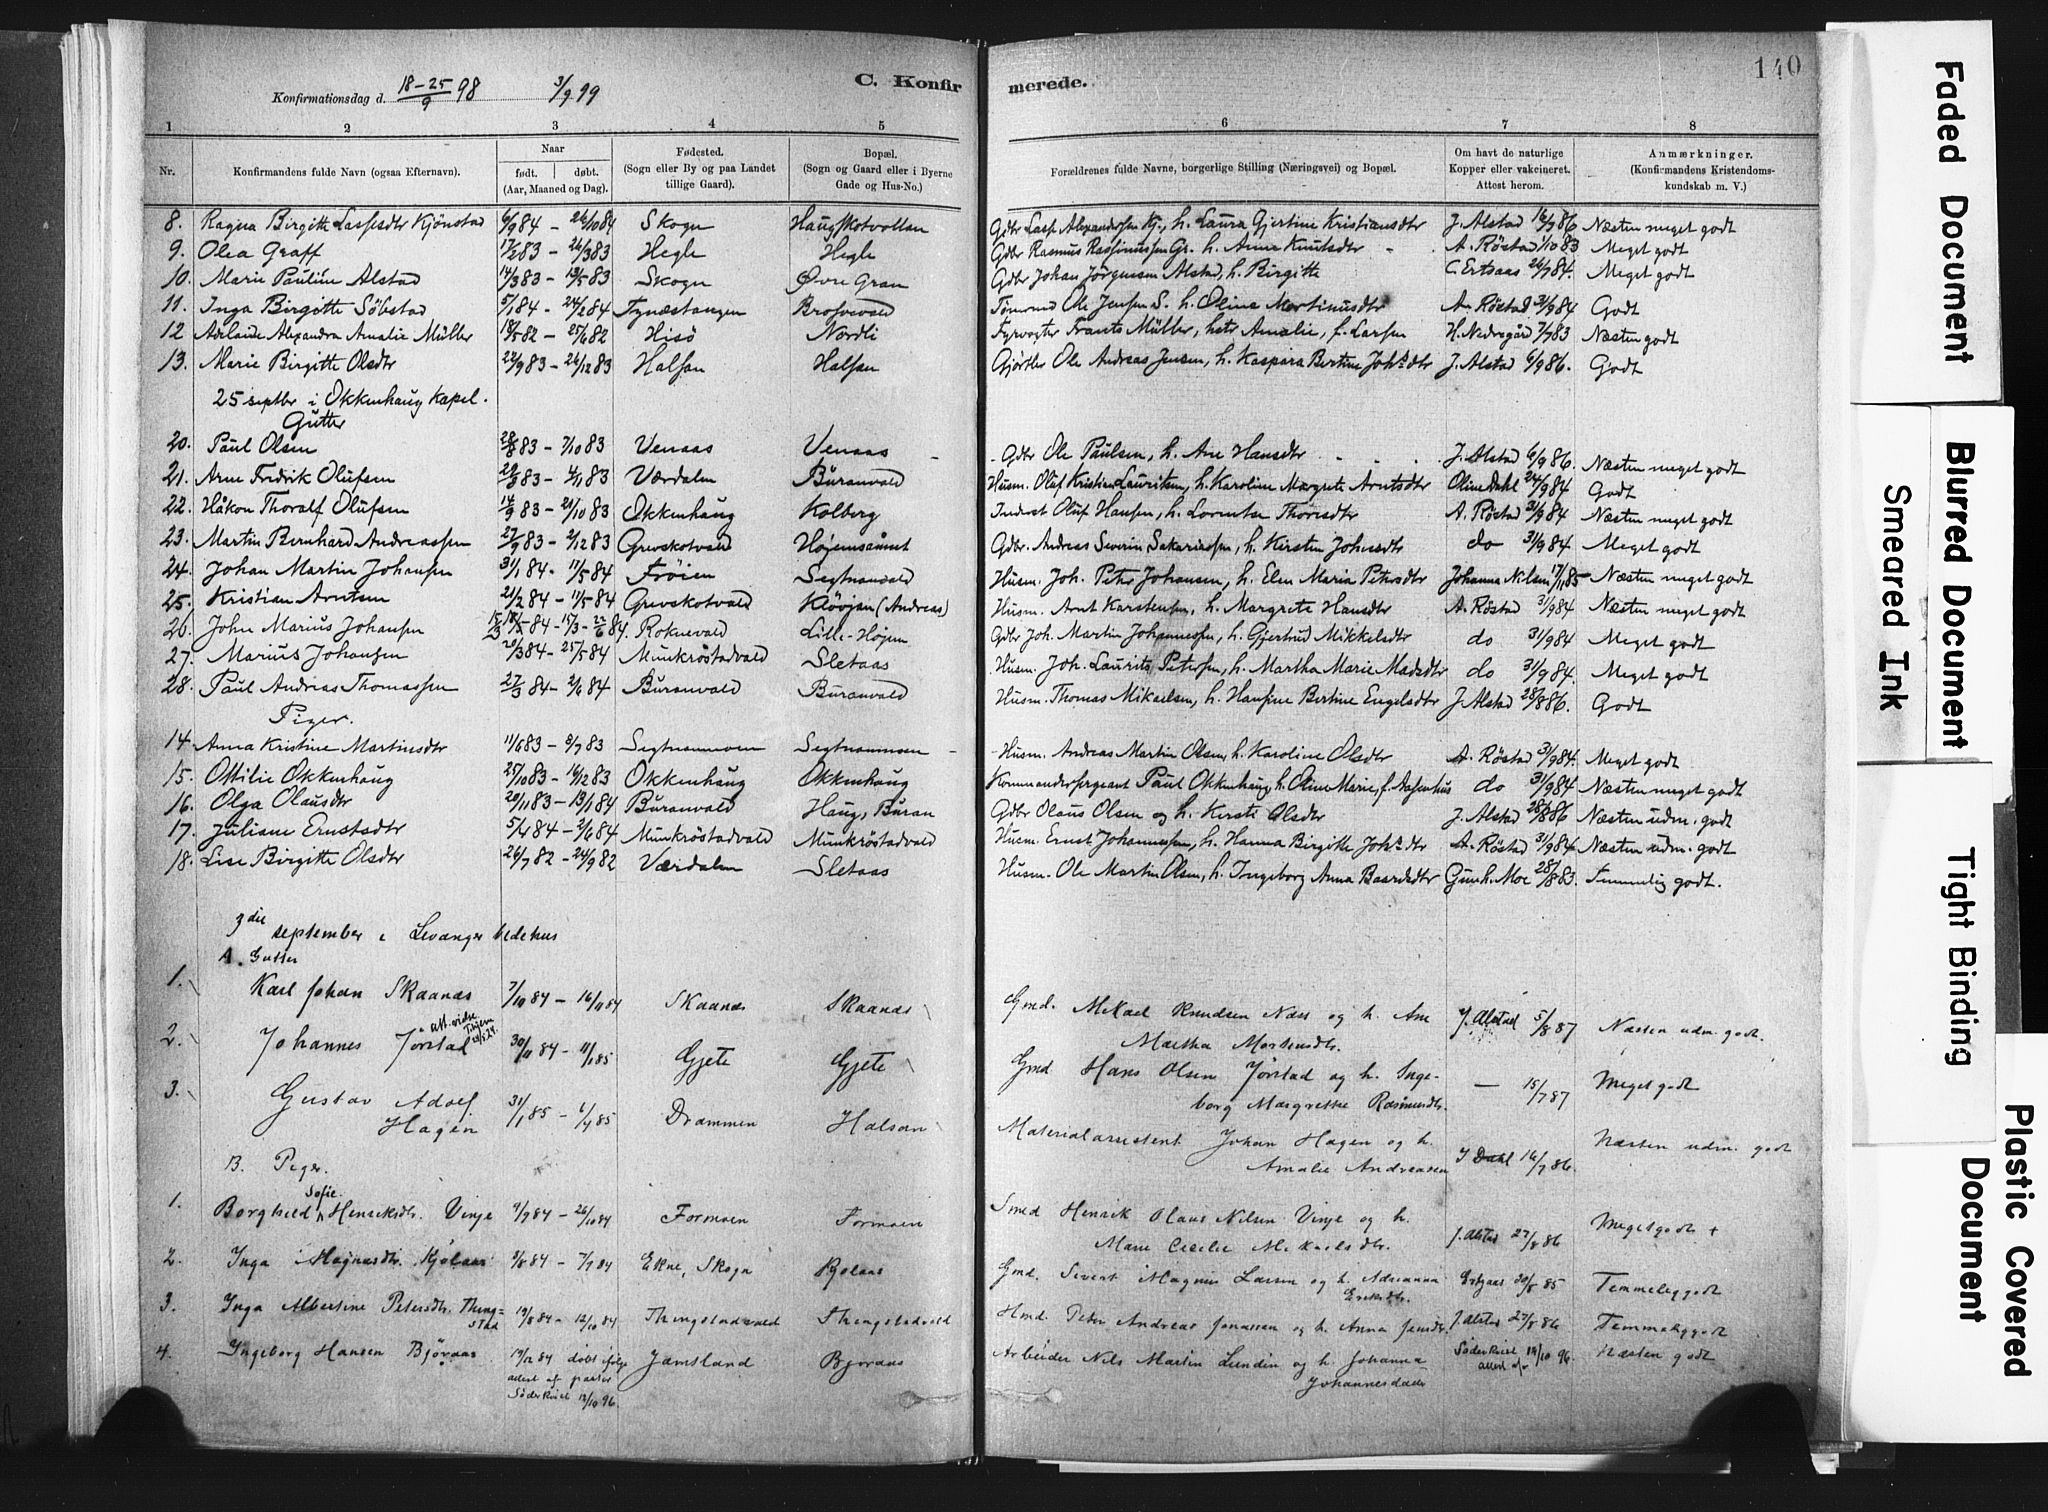 Konfirmationsdag d. 18-25/9 98 3/9 99
C. Konfirmerede.
140
1 2 3 4 5 6 7 8
Nr. Konfirmandens fulde Navn (ogsaa Efternavn). Naar født. døbt. (Aar, Maaned og Dag). Fødested. (Sogn eller By og paa Landet tillige Gaard). Bopæl. (Sogn og Gaard eller i Byerne Gade og Hus-No.) Forældrenes fulde Navne, borgerlige Stilling (Næringsvei) og Bopæl. Om havt de naturlige Kopper eller vakcineret. Attest herom. Anmærkninger. (Konfirmandens Kristendomskundskab m. V.)
8. Ragna Birgitte Lassesdtr Kjönstad 6/9 84 - 26/10 84 Skogn Haugskotvollen Gdbr Lasse Alexandersen Kj., h. Laura Gjertine Kristiansdtr J. Alstad 16/9 86 Næsten meget godt
9. Olea Graff 17/2 83 - 26/3 83 Hegle Hegle Gdbr Rasmus Gr. h. Anne Knutsdtr A. Röstad 1/10 83 Meget godt
10. Marie Pauline Alstad 14/3 83 - 13/5 83 Skogn Øvre Gran Gdbr Johan Jörgensen Alstad, h. Birgitte C. Ertsaas 26/7 84. Meget godt
11. Inga Birgitte Söbstad 5/1 84 - 24/2 84 Fynæstangen Ole Jensen S. h. Oline Martinusdtr A. Röstad 31/9 84 Godt
12 Adelaide Alexandra Amalie Müller 18/5 82 - 25/6 82 Hisö Nordli Fyrvogter Frants Müller, Amalie, f. Larsen H. Nedregård 7/7 83 Næsten godt
13. Marie Birgitte Olsdtr 22/9 83 - 26/12 83 Halsan Halsan Gjörtler Ole Andreas Jensen, h. Kaspara Bertine Johsdtr J. Alstad 6/9 86. Godt
25 septbr i Okkenhaug kapel.
Gutter
20. Paul Olsen 28/8 83 - 7/10 83 Venaas Venaas Gdbr Ole Paulsen, h. Ane Hansdtr J. Alstad 6/9 86. Næsten meget godt
21. Arne Fridrik Olufsen 29/8 83 - 4/11 83 Værdalen Buranvald Husm. Oluf Kristian Lauritsen, h. Karoline Margrete Arntsdtr Oline Dahl 24/9 84 Godt
22. Håkon Thoralf Olufsen 14/9 83 - 21/10 83 Okkenhaug Kolberg Inderst Oluf Hansen, h. Lorentse Thoresdtr A. Röstad 31/9 84 Næsten meget godt
23. Martin Bernhard Andreassen 27/9 83 - 2/12 83 Grevskotvald Højemsaunet Gdbr. Andreas Severin Sakariassen, h. Kirsten Johnsdtr do 31/9 84 Meget godt
24. Johan Martin Johansen 31/1 84 - 11/5 84 Fröien Segtnanvald Husm. Joh. Peter Johansen, h. Elen Maria Petersdtr Johanna Nilsen 17/11 85 Næsten meget godt
25. Kristian Arntsen 21/2 84 - 11/5 84 Grevskotvald Klövjan (Andreas) Husm. Arnt Karstensen, h. Margrete Hansdtr A. Röstad 31/9 84 Næsten meget godt
26. John Marius Johansen 84 Roknevald Lille-Højen Gdbr Joh. Martin Johannessen, h. Gjertrud Mikkelsdtr do 31/9 84 Meget godt
27. Marius Johansen 20/3 84 - 25/5 84 Munkröstadvald Sletaas Husm. Joh. Laurits Petersen, h. Martha Marie Madsdtr do 31/9 84. Meget godt
28. Paul Andreas Thomassen 27/3 84 - 2/6 84 Buranvald Buranvald Husm. Thomas Mikaelsen, h. Hansine Bertine Engelsdtr J Alstad 28/8 86. Godt
Piger.
14. Anna Kristine Martinsdtr 11/6 83 - 8/7 83 Segtnanmoen Segtnanmoen Husm. Andreas Martin Olsen, h. Karoline Olsdtr A. Röstad 31/9 84. Meget godt
15. Ottilie Okkenhaug 25/10 83 - 16/12 83 Okkenhaug Okkenhaug Kommandersergeant Paul Okkenhaug, h. Oline Marie, f. Aasenhus do 31/9 84 Næsten meget godt
16. Olga Olausdtr 20/11 83 - 13/1 84 Buranvald Haug, Buran Gdbr Olaus Olsen og h. Kirsti Olsdtr J. Alstad 28/8 86 Næsten udm. godt
17. Juliane Ernstsdtr 5/4 84 - 2/6 84 Munkröstadvald Munkröstadvald Husm. Ernst Johannessen, h. Hanna Birgitte Johsdtr A. Röstad 31/9 84 Næsten udm. godt
18. Lise Birgitte Olsdtr 26/7 82 - 24/9 82 Værdalen Sletaas Husm. Ole Martin Olsen, h. Ingeborg Anna Baardsdtr Gunh. Moe 28/8 83. Temmelig godt.
3die september i Levanger bedehus
A. Gutter
1. Karl Johan Skaanes 7/10 84 - 16/11 84 Skaanes Skaanes Gmd. Mikael Knudsen Næss og h. Ane Martha Mortensdtr. J. Alstad 5/8 87 Næsten udm. godt.
2. Johannes Jørstad 30/11 84 - 11/1 85 Gjete Gjete Gmd Hans Olsen Jörstad og h. Ingeborg Margrethe Rasmusdtr. — 15/7 87 Meget godt
3. Gustav Adolf Hagen 31/1 85 - 6/4 85 Drammen Halsan Materialassistent Johan Hagen og h. Amalie Andreasen J Dahl 16/7 86. Næsten udm. godt
B. Piger.
1. Borghild Sofie Henriksdtr. Vinje 9/9 84 - 26/10 84 Formoen Formoen Smed Henrik Olaus Nilsen Vinje og h. Marie Cecilie Mikaelsdtr. J. Alstad 27/8 86 Meget godt +
2. Inga Magnusdtr. Kjölaas 84 - 7/9 84 Ekne, Skogn Bjölaas Gmd. Sivert Magnus Larsen og h. Adrianna Eriksdtr. Ertsaas 30/8 85 Temmelig godt
3. Inga Albertine Petersdtr. Thingstad 19/8 84 - 12/10 84 Thingstadvald Thingstadvald Hmd. Peder Andreas Jonassen og h. Anna Jensdtr. J. Alstad 27/8 86 Temmelig godt
4. Ingeborg Hansen Björaas 19/12 84 döbt ifölge attest af pastor Söderkvist 13/10 96. Jämtland Björaas Arbeider Nils Martin Lundin og h. Johanna Johannesdatter Söderkvist attest af 14/10 96. Næsten godt
Faded Document
Blurred Document
Smeared Ink
Tight Binding
Plastic Covered Document